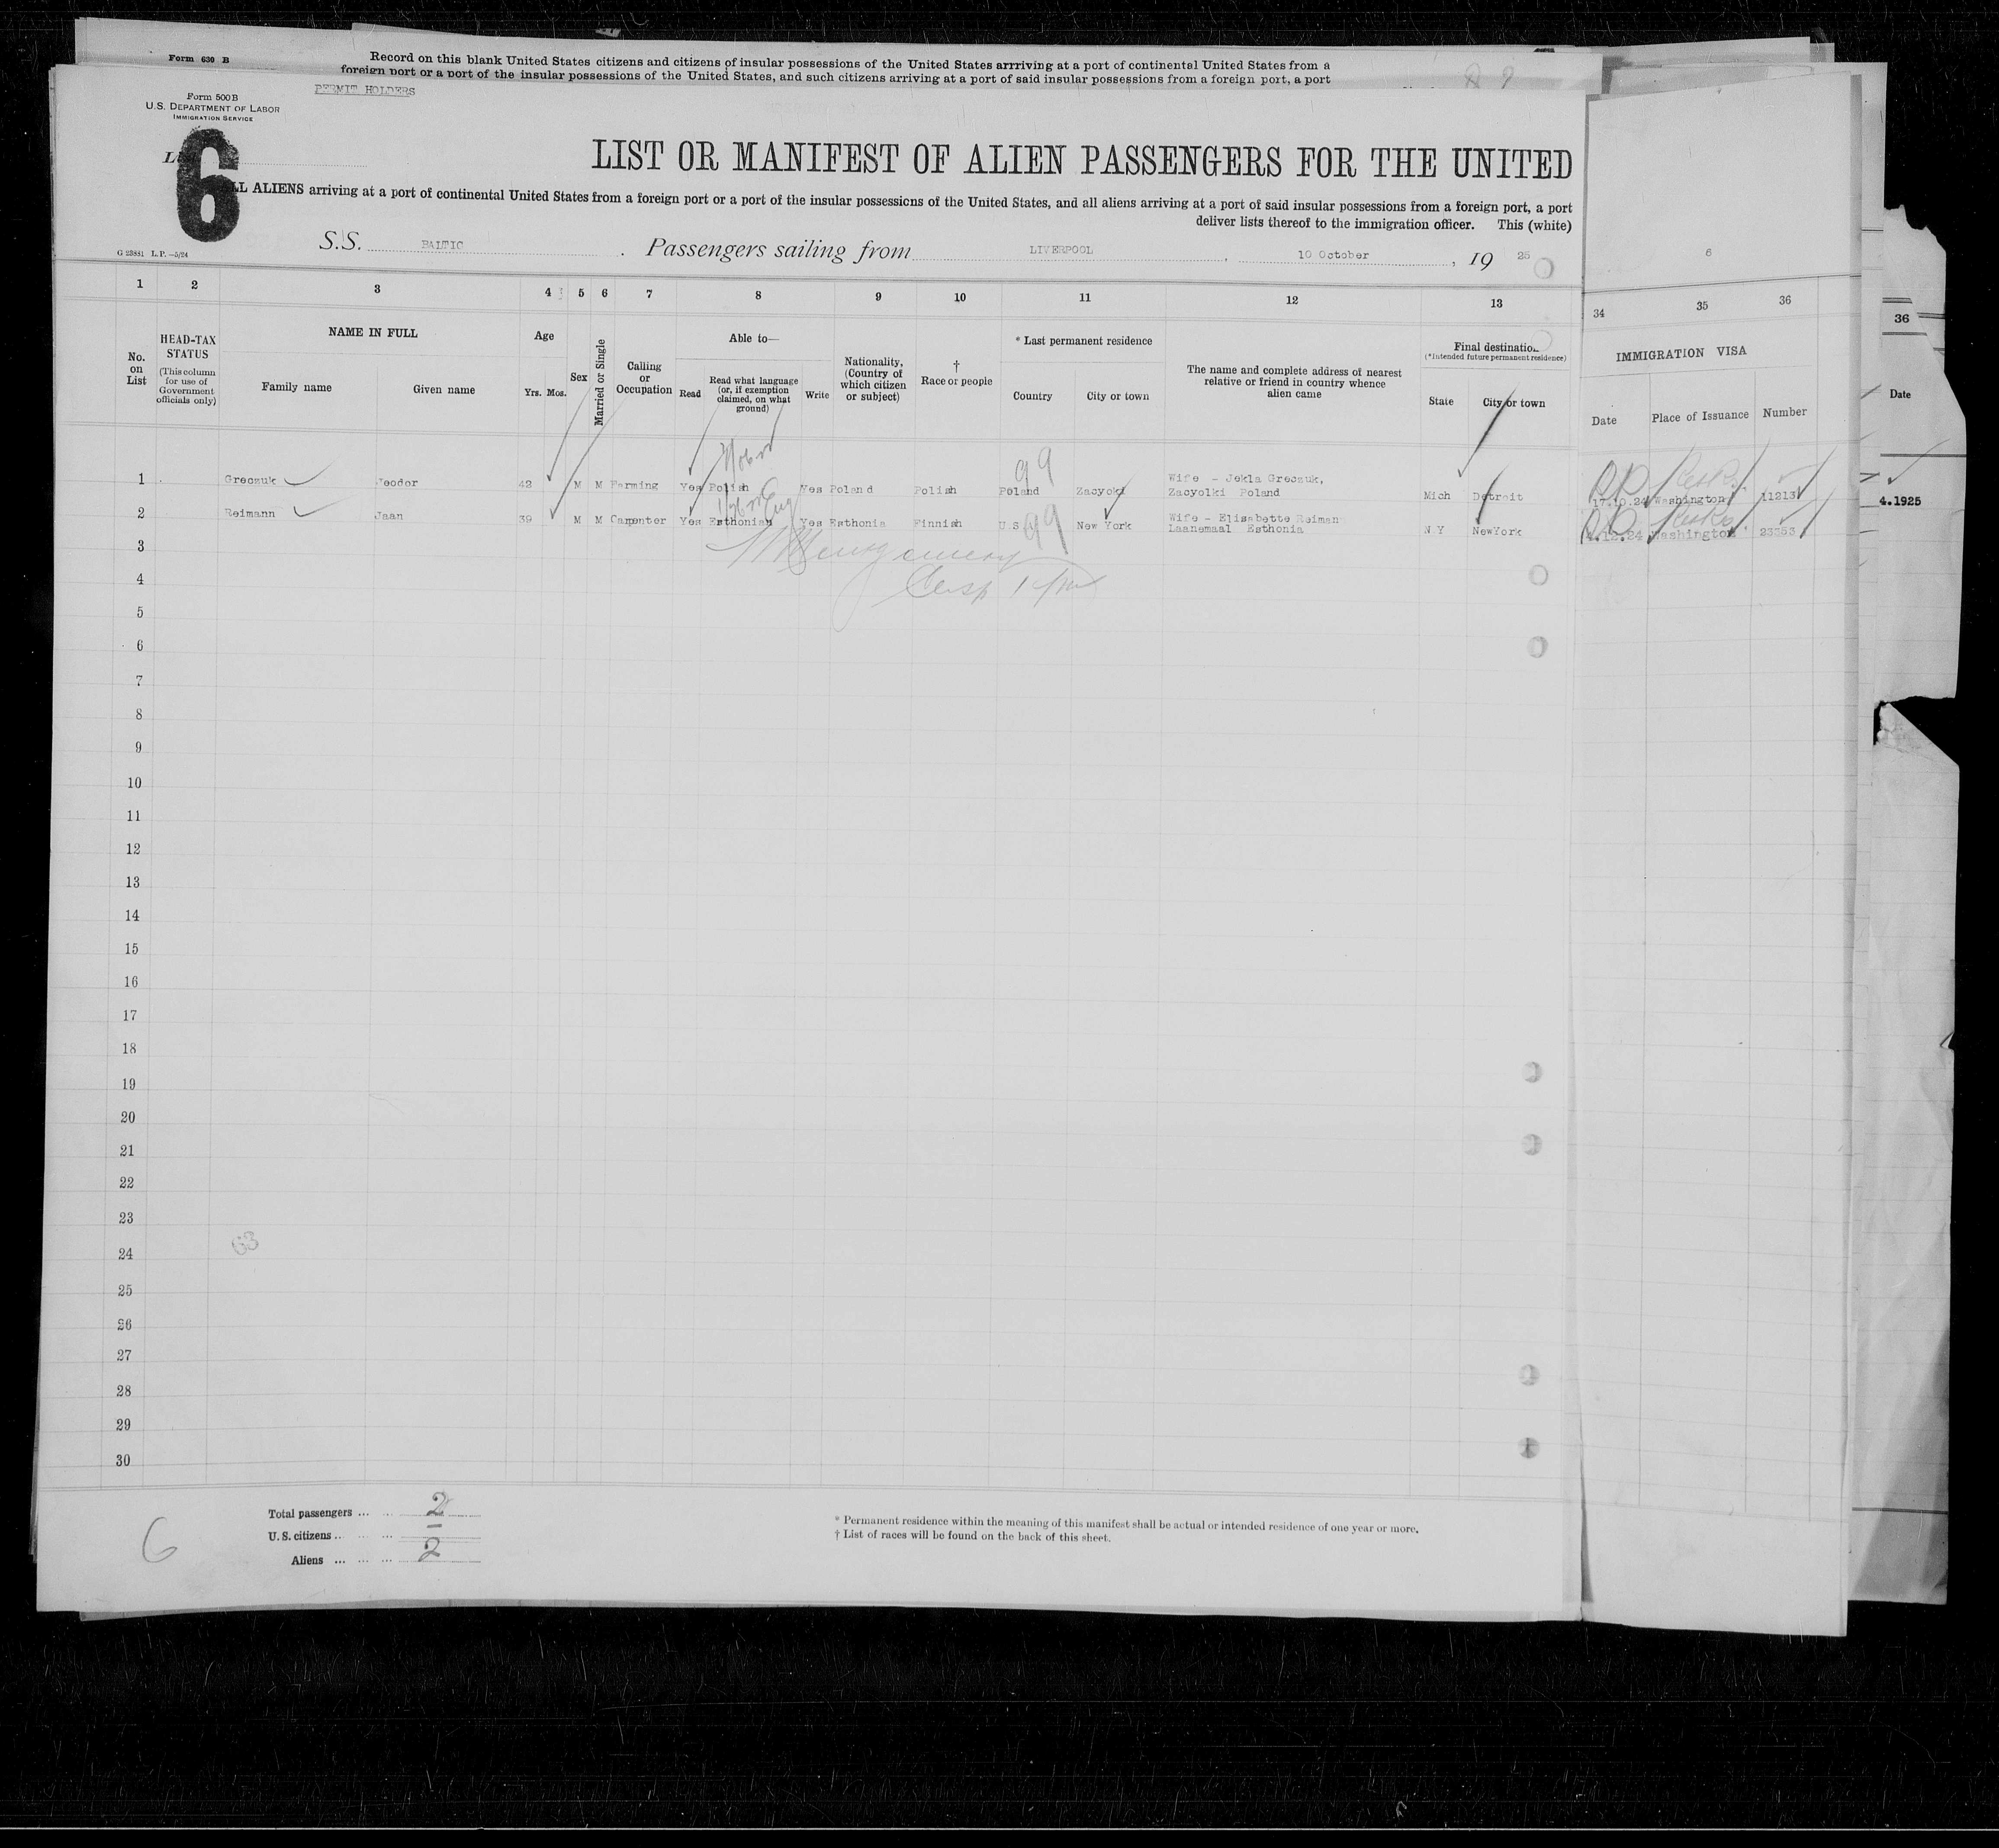 Form 630 B
Record on this blank United States citizens and citizens of insular possessions of the United States arrriving at a port of continental United States from a
foreign port or a port of the insular possessions of the United States, and such citizens arriving at a port of said insular possessions from a foreign port, a port
PERMIT HOLDERS
Form 500 B
U.S. DEPARTMENT OF LABOR
IMMIGRATION SERVICE
6
LIST OR MANIFEST OF ALIEN PASSENGERS FOR THE UNITED
LL ALIENS arriving at a port of continental United States from a foreign port or a port of the insular possessions of the United States, and all aliens arriving at a port of said insular possessions from a foreign port, a port
deliver lists thereof to the immigration officer. This (white)
G 23881 L.P.—5/24
S.S. BALTIC . Passengers sailing from LIVERPOOL , 10 October , 19 25
6
1 2 3 4 5 6 7 8 9 10 11 12 13 34 35 36
36
No. on List
HEAD-TAX STATUS
(This column for use of Government officials only)
NAME IN FULL
Family name Given name
Age
Yrs. Mos.
Sex
Married or Single
Calling or Occupation
Able to—
Read
Read what language (or, if exemption claimed, on what ground)
Write
Nationality, (Country of which citizen or subject)
† Race or people
* Last permanent residence
Country City or town
The name and complete address of nearest relative or friend in country whence alien came
Final destination
(*Intended future permanent residence)
State City or town
IMMIGRATION VISA
Date Place of Issuance Number
Date
99
1 Greczuk Teodor 42 M M Farming Yes Polish Yes Poland Polish Poland Zacyoki Wife - Jekla Greczuk, Mich Detroit 17.10.24 Washington 11213
Zacyolki Poland
4.1925
Eng
99
2 Reimann Jaan 39 M M Carpenter Yes Esthonian Yes Esthonia Finnish U.S New York Wife - Elisabette Reiman N Y NewYork .12.24 Washington 23353
Laanemaal Esthonia
3
Montgomery
4
5
6
7
8
9
10
11
12
13
14
15
16
17
18
19
20
21
22
23
63
24
25
26
27
28
29
30
Total passengers ... ... 2
U.S. citizens .. ... ... —
Aliens ... ... ... 2
6
* Permanent residence within the meaning of this manifest shall be actual or intended residence of one year or more.
† List of races will be found on the back of this sheet.